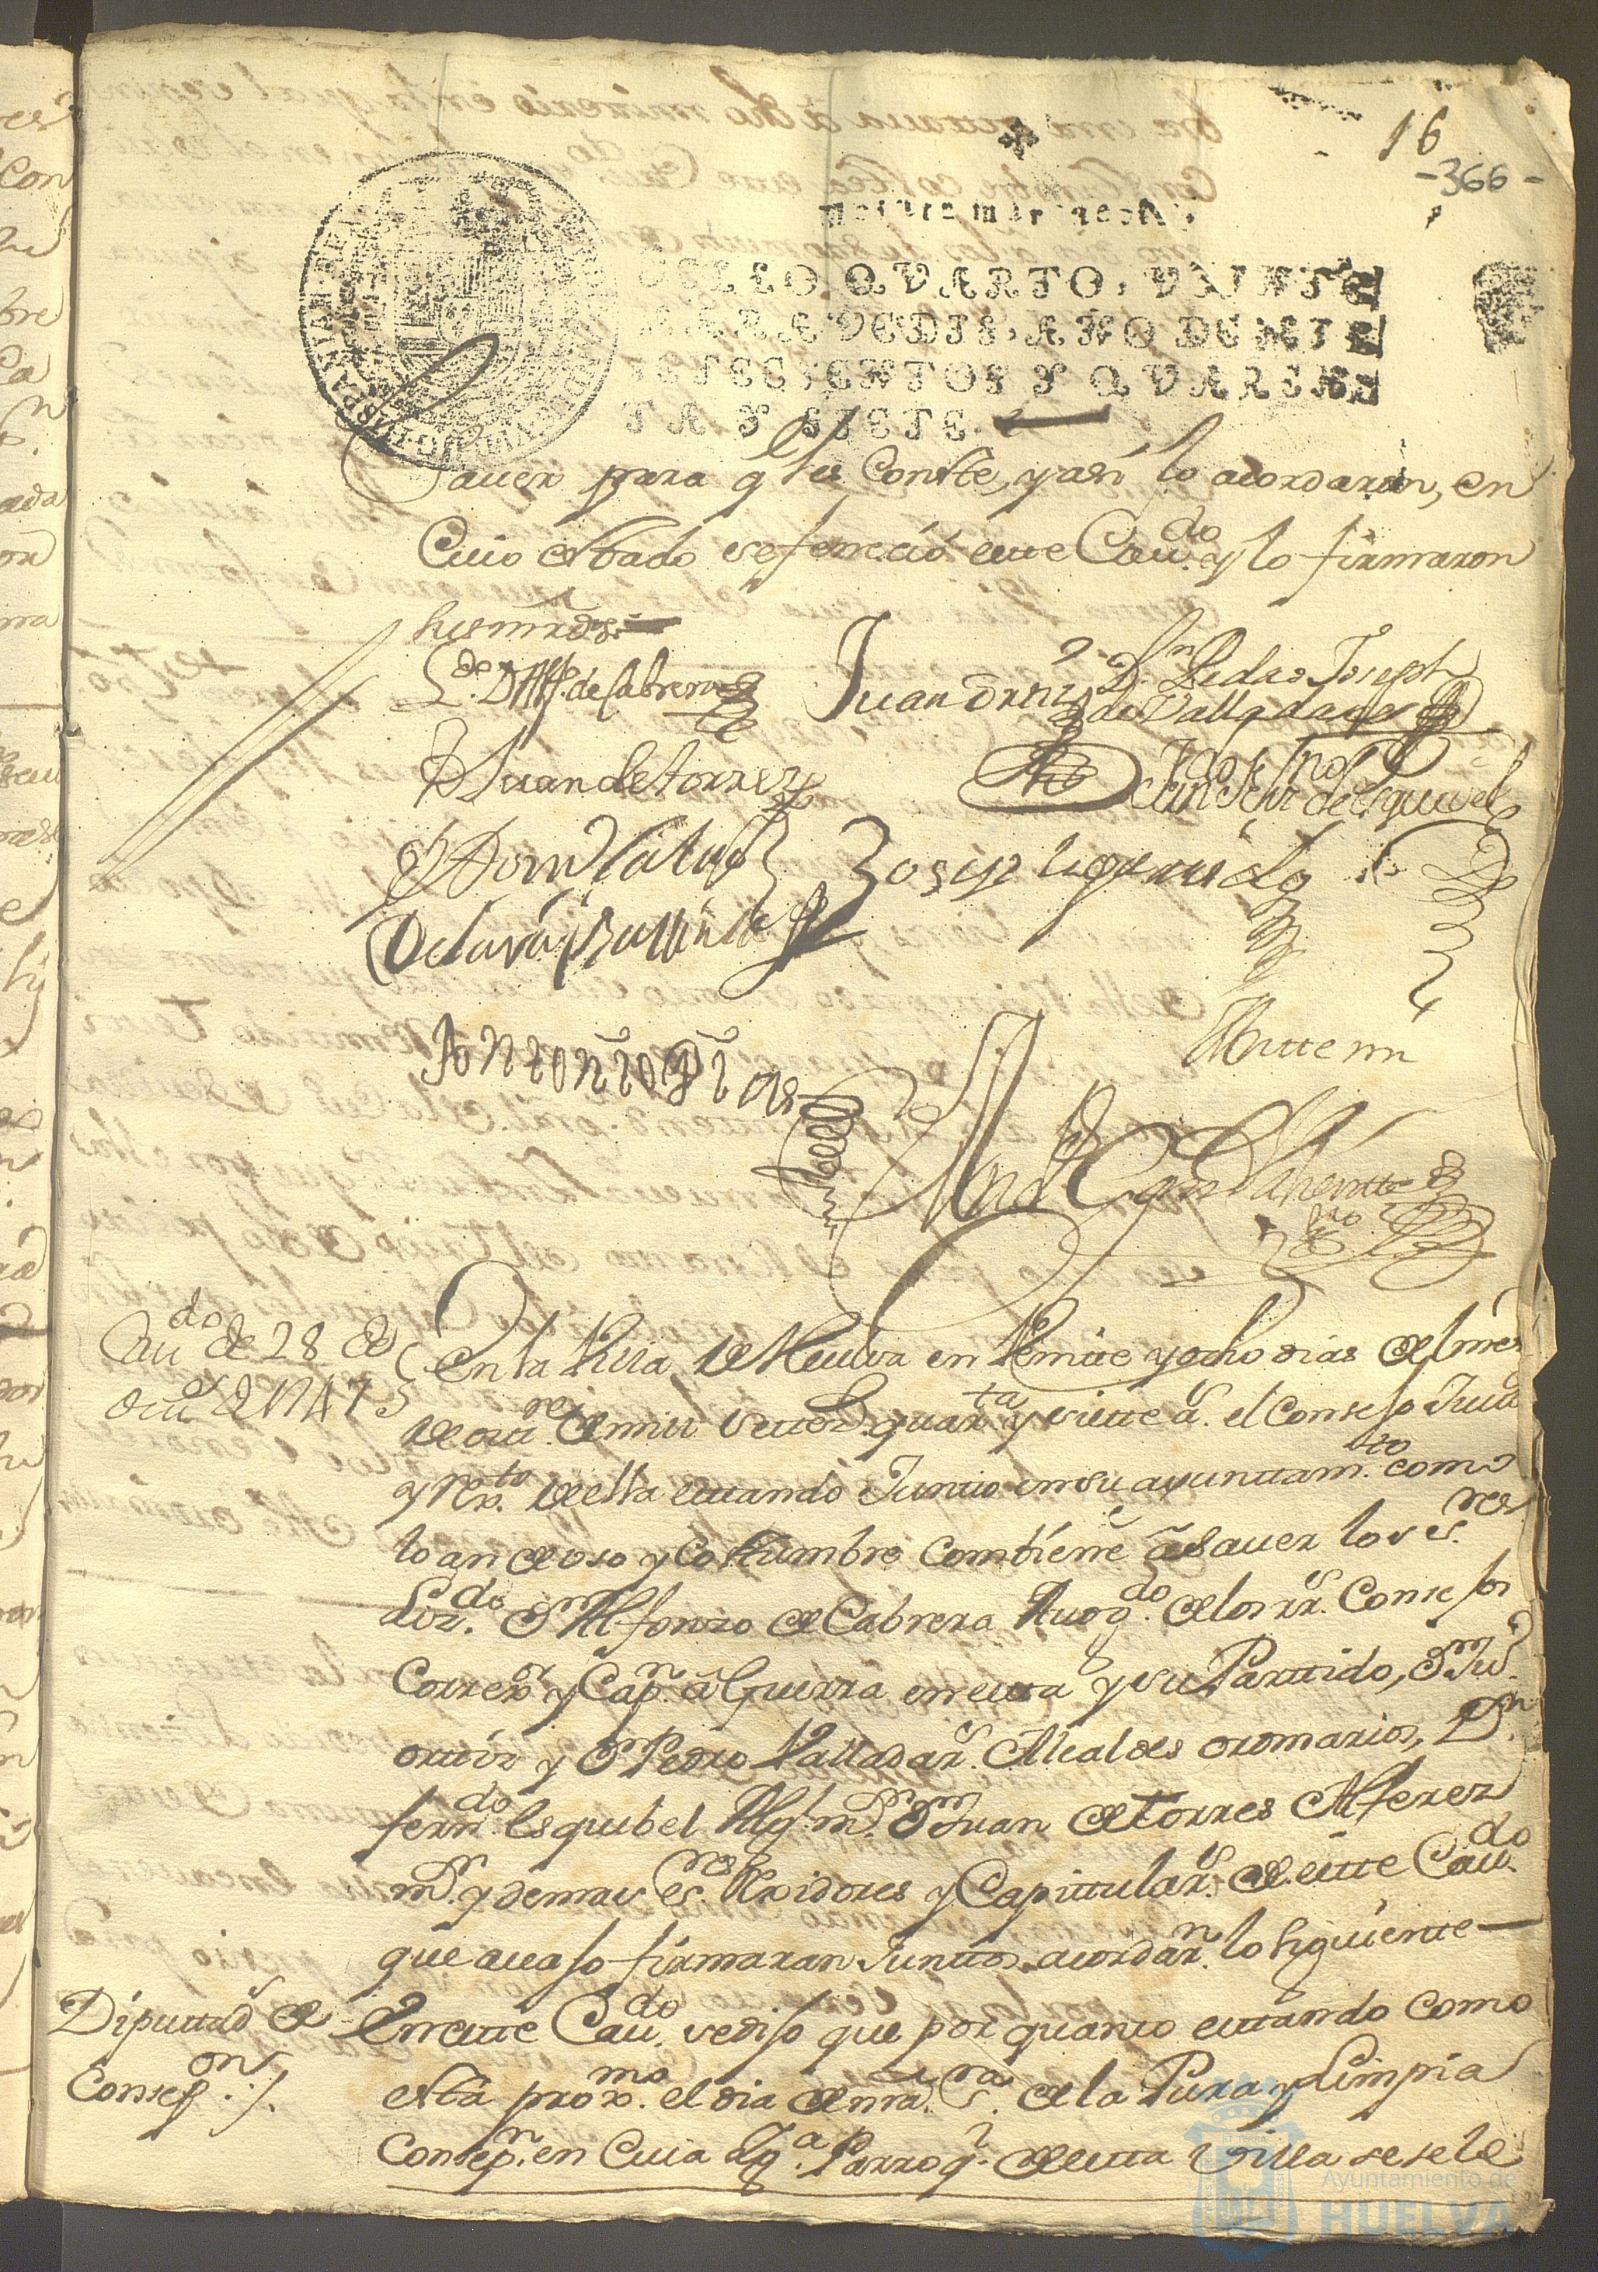 16
-366-
Veinte maravedis.
SELLO QVARTO, VEINTE
MARAVEDIS, AÑO DE MIL
SETECIENTOS Y QVAREN
TA Y SIETE.
Sauer para q les Conste, y asi lo acordaron, en
Cuio estado se feneció este Cau.do y lo firmaron
sus mrds.
L.do D Alf.o de Cabrera
Juan Ortiz
D.n Pedro Joseph
de Valladares
D Juan de torres
de Esquivel
Octavio
Antonio Dias
Ante mi
Valiente
Cau.do de 28 de
Octu.e de 1747
En la Villa de Huelva en Veinte y ocho dias del mes
de octu.re de mill settec.s quar.ta y siette a.s el Consejo Justt.a
y Rex.to de ella estando Junto en su ayuntam.to como
lo an de uso y Costumbre Combiene a Sauer los s.res
Liz.do D.n Alfonso de Cabrera Auog.do de los R.s Consejos
Correx.or y Cap.n a Guerra en esta y su Parttido, D.n Ju.o
ortiz y D.n Pedro Valladar.s Alcaldes ordinarios, D.n
fern.do Esquibel Alg.l m.r D.n Juan de torres Alferez
m.r y demas s.res Rexidores y Capittular.s de este Cau.do
que auajo firmaran Junttos acordar.n lo siguiente
Diputtad.s de
Consep.on
En este Cau.do se dijo que por quanto estando como
està prox.mo el dia de nra. S.ra de la Pura y Limpia
Consep.n en Cuia Ig.a Parroq.l de esta Villa se sele
Ayuntamiento de
HUELVA